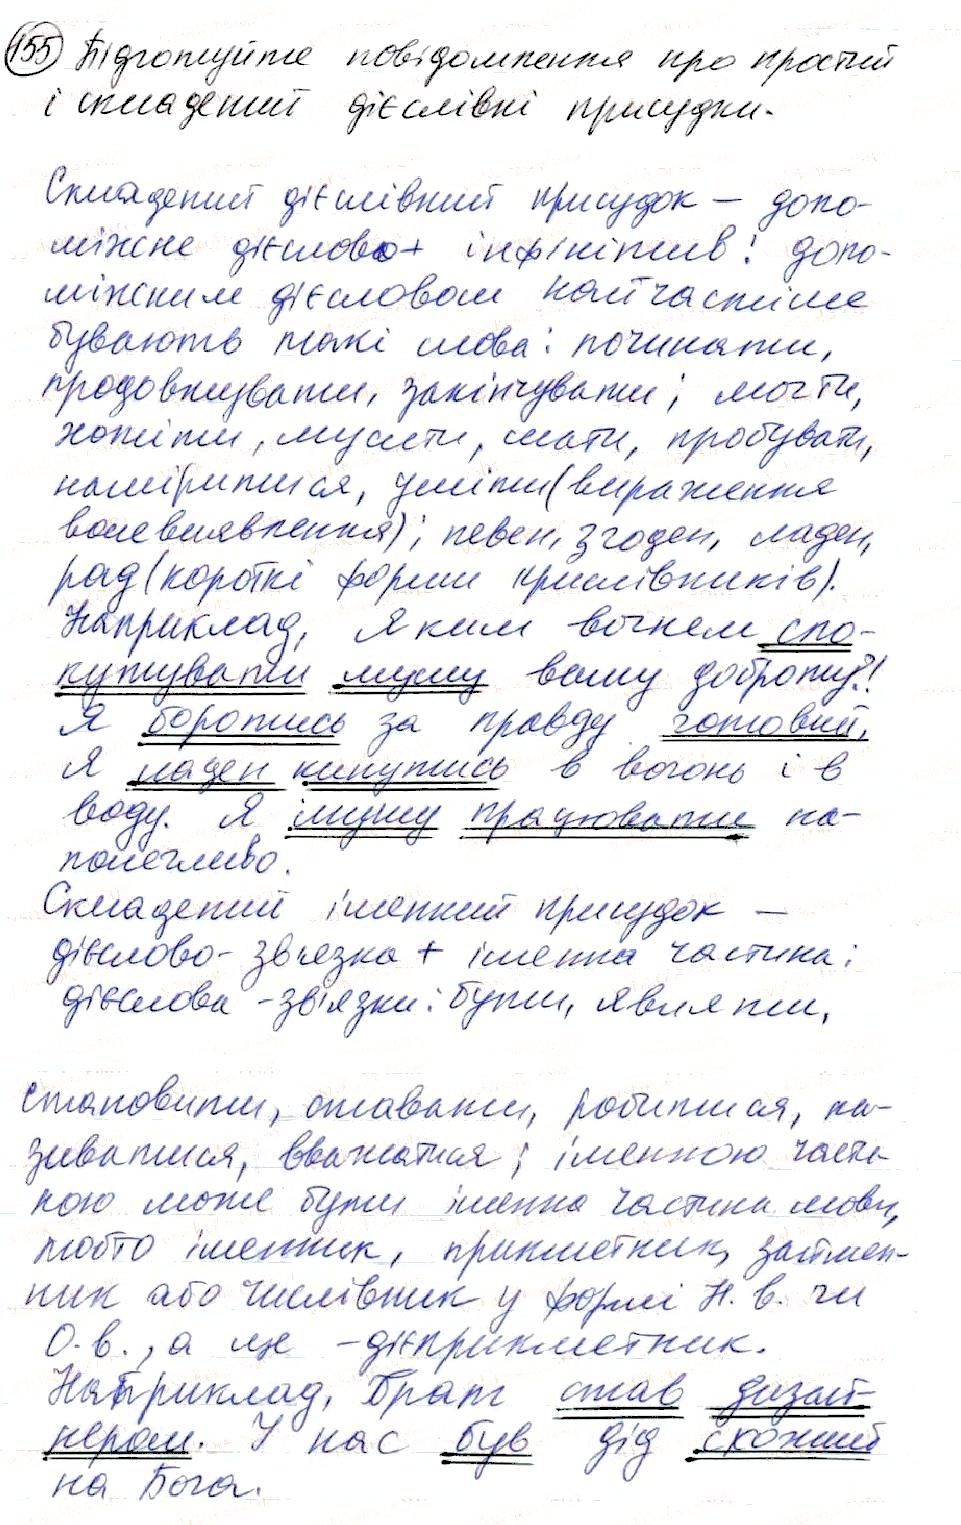 155 Підготуйте повідомлення про простий
і складений дієслівні присудки.
Складений дієслівний присудок – допо-
міжне дієслово + інфінітив: допо-
міжним дієсловом найчастіше
бувають такі слова: починати,
продовжувати, закінчувати; могти,
хотіти, мусити, мати, пробувати,
наміритися, уміти (вираження
волевиявлення); певен, згоден, ладен,
рад (короткі форми прислівників).
Наприклад, Яким вогнем спо-
кутувати мушу вашу доброту?!
Я боротись за правду готовий,
Я ладен кинутись в вогонь і в
воду. Я мушу працювати на-
полегливо.
Складений іменний присудок –
дієслово-зв'язка + іменна частина:
дієслова-зв'язки: бути, являти,
становити, ставати, робитися, на-
зиватися, вважатися; іменною части-
ною може бути іменна частина мови,
тобто іменник, прикметник, займен-
ник або числівник у формі Н.в. чи
О.в., а ще – дієприкметник.
Наприклад, Брат став дизай-
нером. У нас був дід схожий
на Бога.